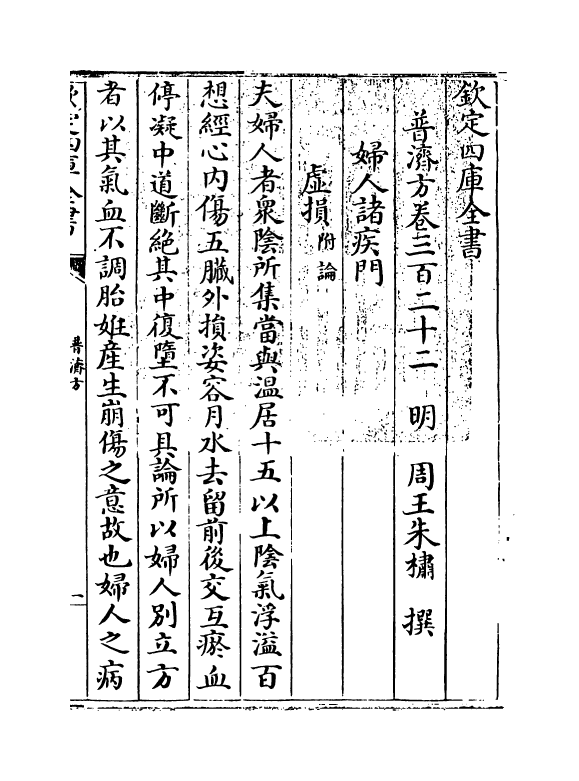 欽定四庫全書
普濟方卷三百二十二 明 周王朱橚 撰
婦人諸疾門
虛損附論
夫婦人者衆陰所集當與温居十五以上陰氣浮溢百
想經心内傷五臟外損姿容月水去留前後交互瘀血
停凝中道斷絶其中復墮不可具論所以婦人别立方
者以其氣血不調胎妊産生崩傷之意故也婦人之病
欽定四庫全書
普濟方
一